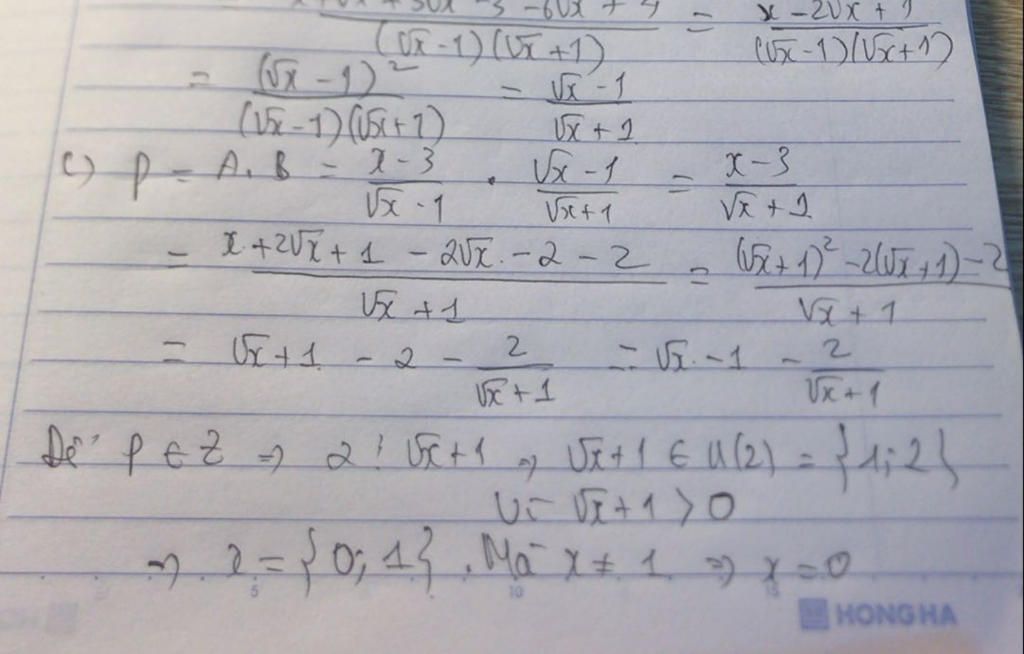 x + √x + 3√x - 3 - 6√x + 4 / (√x - 1)(√x + 1) = x - 2√x + 1 / (√x - 1)(√x + 1)
= (√x - 1)² / (√x - 1)(√x + 1) = √x - 1 / √x + 1
c) P = A . B = x - 3 / √x - 1 . √x - 1 / √x + 1 = x - 3 / √x + 1
= x + 2√x + 1 - 2√x - 2 - 2 / √x + 1 = (√x + 1)² - 2(√x + 1) - 2 / √x + 1
= √x + 1 - 2 - 2 / √x + 1 = √x - 1 - 2 / √x + 1
Để P ∈ Z ⇒ 2 ⋮ √x + 1 ⇒ √x + 1 ∈ Ư(2) = {1; 2}
Vì √x + 1 > 0
⇒ x = {0; 1} . Mà x ≠ 1 ⇒ x = 0
5 10 15
HONG HA